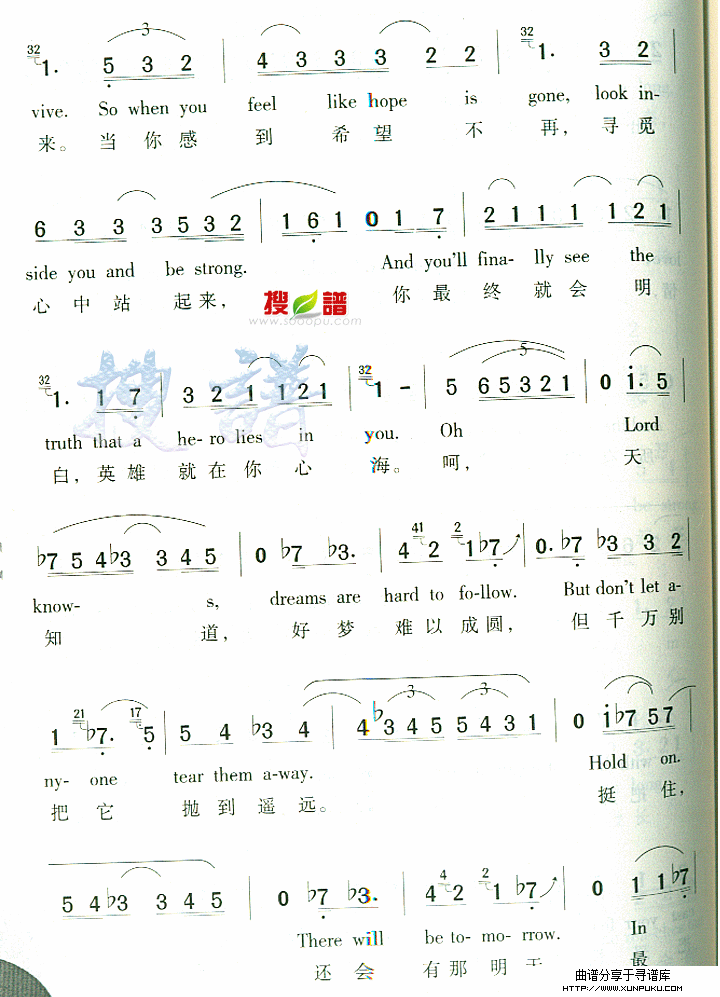 32 1. 5 3 2 | 4 3 3 3 2 2 | 32 1. 3 2 |
vive. So when you feel like hope is gone, look in-
来。当 你 感 到 希 望 不 再, 寻 觅
6 3 3 3 5 3 2 | 1 6 1 0 1 7 | 2 1 1 1 1 2 1 |
side you and be strong. And you'll fina- lly see the
心 中 站 起 来, 你 最 终 就 会 明
搜 谱
www.sooopu.com
32 1. 1 7 | 3 2 1 1 2 1 | 32 1 - | 5 6 5 3 2 1 | 0 1. 5
搜 谱
truth that a he-ro lies in you. Oh Lord
白, 英 雄 就 在 你 心 海。 呵, 天
♭7 5 4 ♭3 3 4 5 | 0 ♭7 ♭3. | 41 4 2 2 1 ♭7 | 0. ♭7 ♭3 3 2
know- s, dreams are hard to fo-llow. But don't let a-
知 道, 好 梦 难 以 成 圆, 但 千 万 别
1 21 ♭7. 17 5 | 5 4 ♭3 4 | 4 ♭3 4 5 5 4 3 1 | 0 i ♭7 5 7
ny- one tear them a-way. Hold on.
把 它 抛 到 遥 远。 挺 住,
5 4 ♭3 3 4 5 | 0 ♭7 ♭3. | 4 4 2 2 1 ♭7 | 0 1 1 ♭7
There will be to- mo-rrow. In
还 会 有 那 明 最
曲谱分享于寻谱库
HTTP://WWW.XUNPUKU.COM